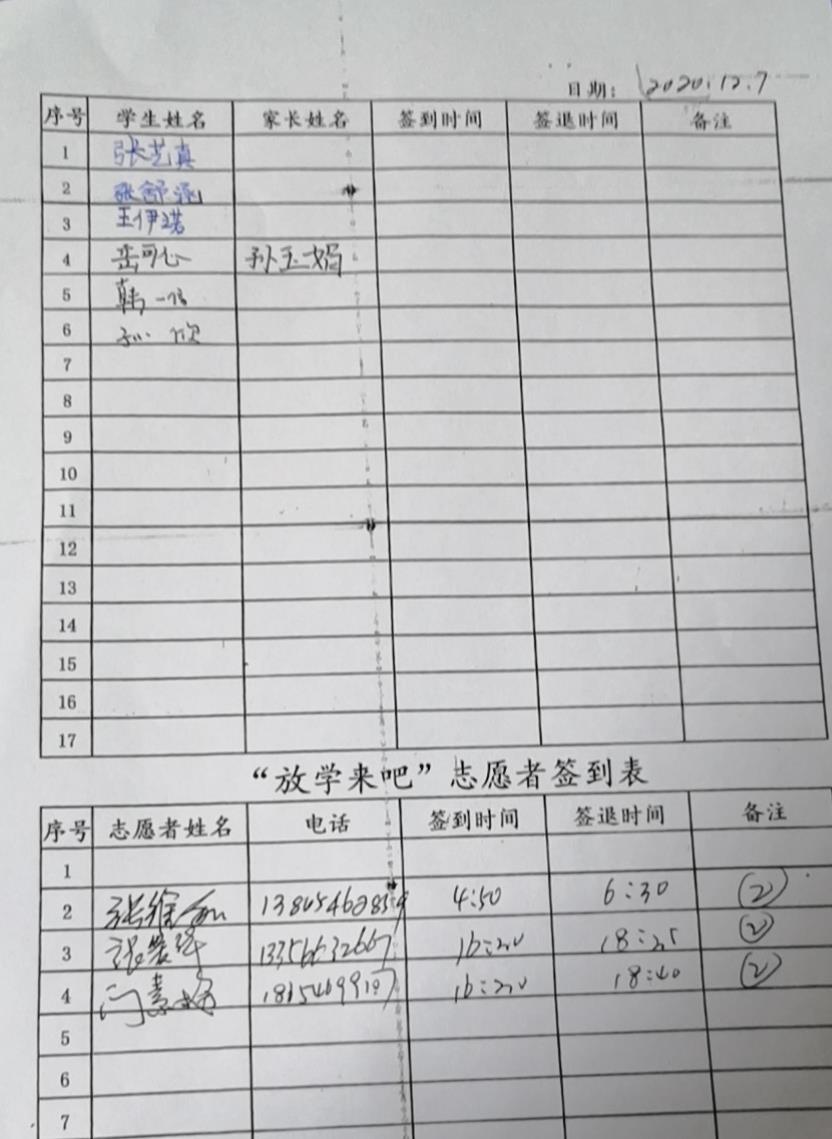 日期: 2020.12.7
序号 学生姓名 家长姓名 签到时间 签退时间 备注
1 张艺真
2 张舒涵
3 王伊诺
4 岳可心 孙玉娟
5 韩一
6
7
8
9
10
11
12
13
14
15
16
17
“放学来吧”志愿者签到表
序号 志愿者姓名 电话 签到时间 签退时间 备注
1
2 4:50 6:30 ②
3 16:20 18:25 ②
4 16:20 18:40 ②
5
6
7